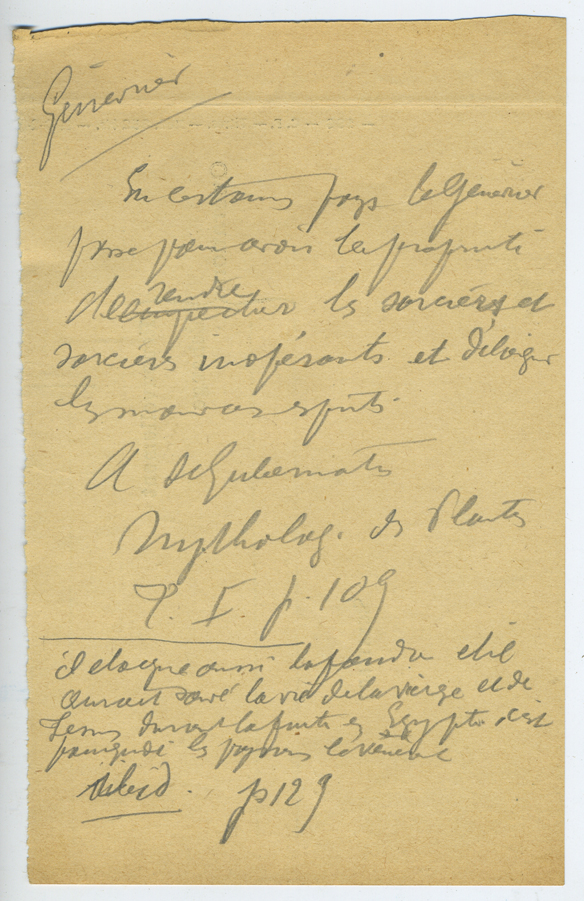 Génévrier
En certains pays le Génévrier
passe pour avoir la propriété
de rendre
empecher les sorcières et
sorciers inopérants et d'éloigner
les mauvais esprits.
A de Gubernatis
Mytholog. des Plantes
T. I. p. 109
il eloigne aussi la foudre et il
aurait sauvé la vie de la vierge et de
Jesus durant la fuite en Egypte, c'est
pourquoi les paysans le vénèrent
ibid. p 129